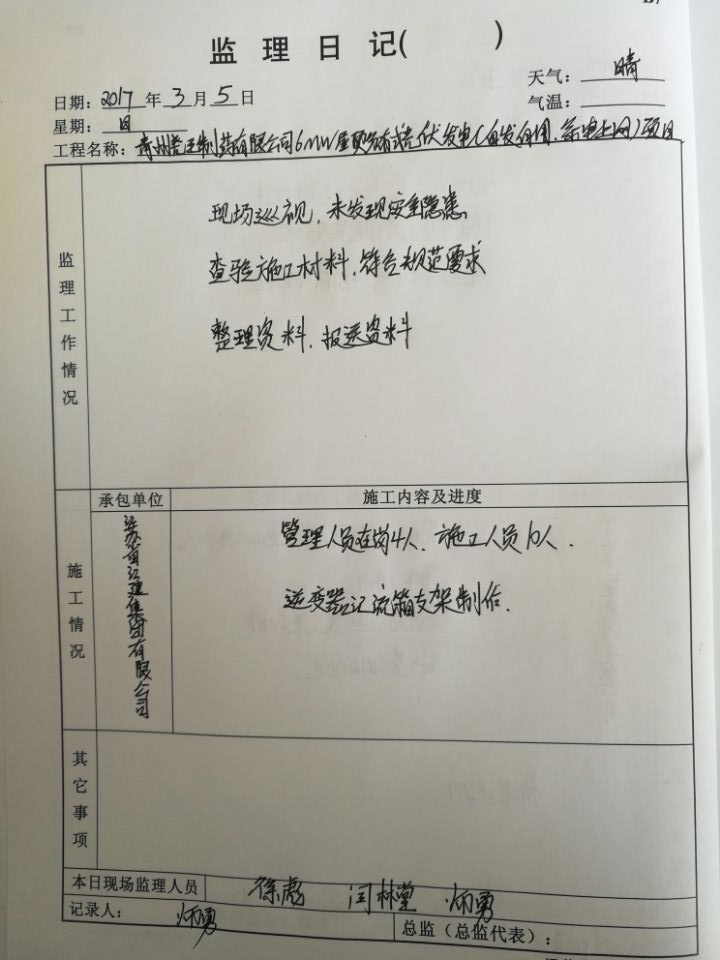 监理日记( )
天气：晴
日期：2017年3月5日
气温：
星期：日
工程名称：青州尧王制药有限公司6MW屋顶分布式光伏发电(自发自用、余电上网)项目
监理工作情况
现场巡视，未发现安全隐患
查验施工材料，符合规范要求
整理资料，报送资料
施工情况
承包单位
施工内容及进度
江苏省江建集团有限公司
管理人员在岗4人、施工人员10人.
逆变器汇流箱支架制作.
其它事项
本日现场监理人员
徐彪 闫林堂 炳勇
记录人：炳勇
总监（总监代表）：